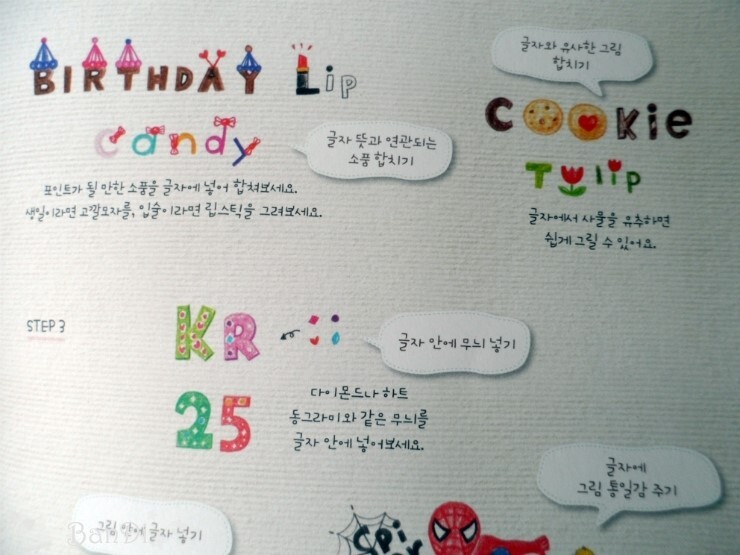 BIRTHDAY Lip
candy
글자 뜻과 연관되는
소품 합치기
포인트가 될 만한 소품을 글자에 넣어 합쳐보세요.
생일이라면 고깔모자를, 입술이라면 립스틱을 그려보세요.
글자와 유사한 그림
합치기
COOKie
TUlip
글자에서 사물을 유추하면
쉽게 그릴 수 있어요.
STEP 3
KR
글자 안에 무늬 넣기
25
다이몬드나 하트
동그라미와 같은 무늬를
글자 안에 넣어보세요.
글자에
그림 통일감 주기
그림 안에 글자 넣기
Spi